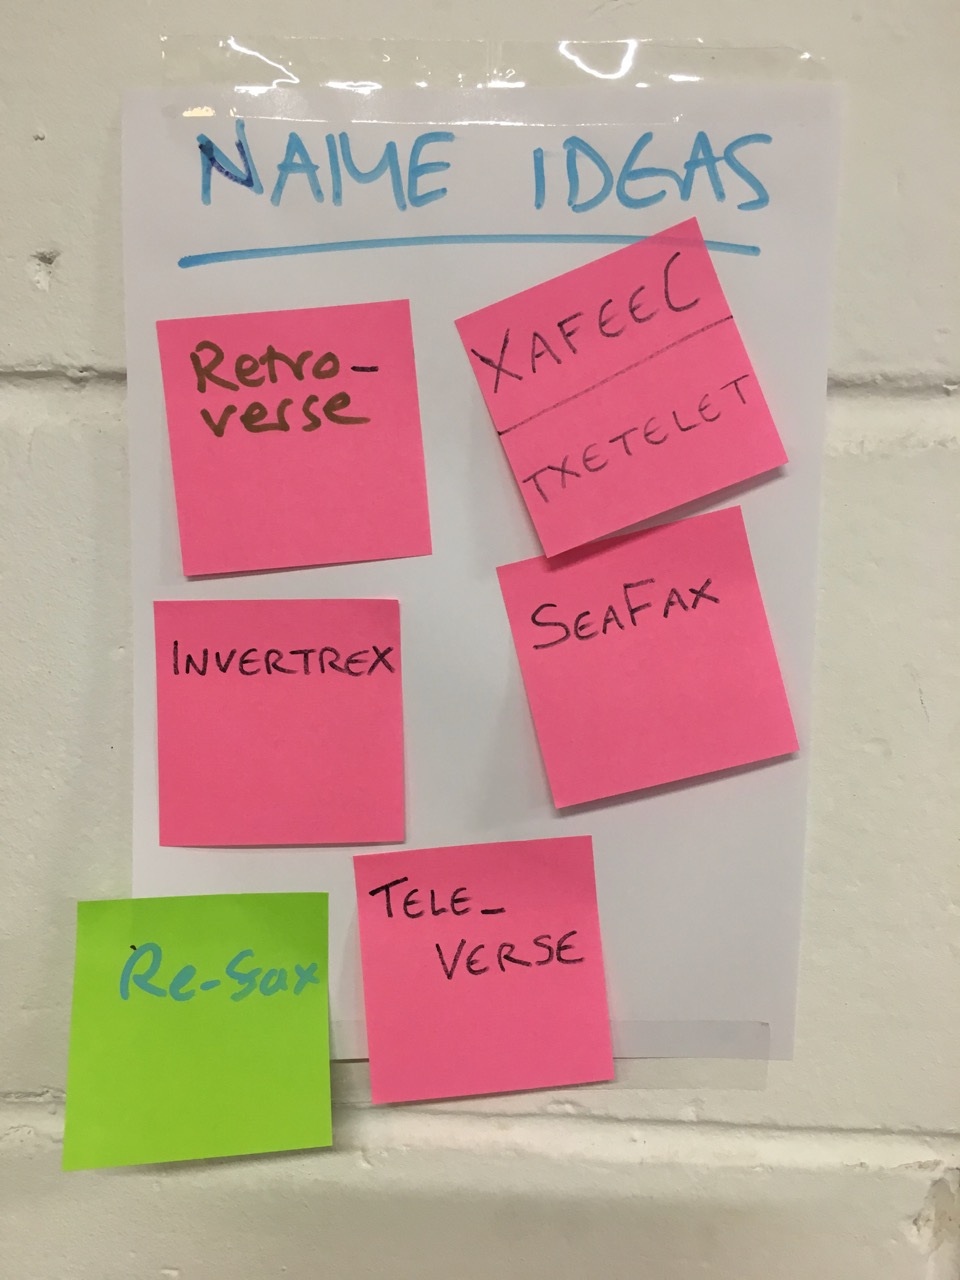 NAME IDEAS
Retro-
verse
XAFEEC
TXETELET
INVERTREX
SEAFAX
TELE-
VERSE
Re-fax